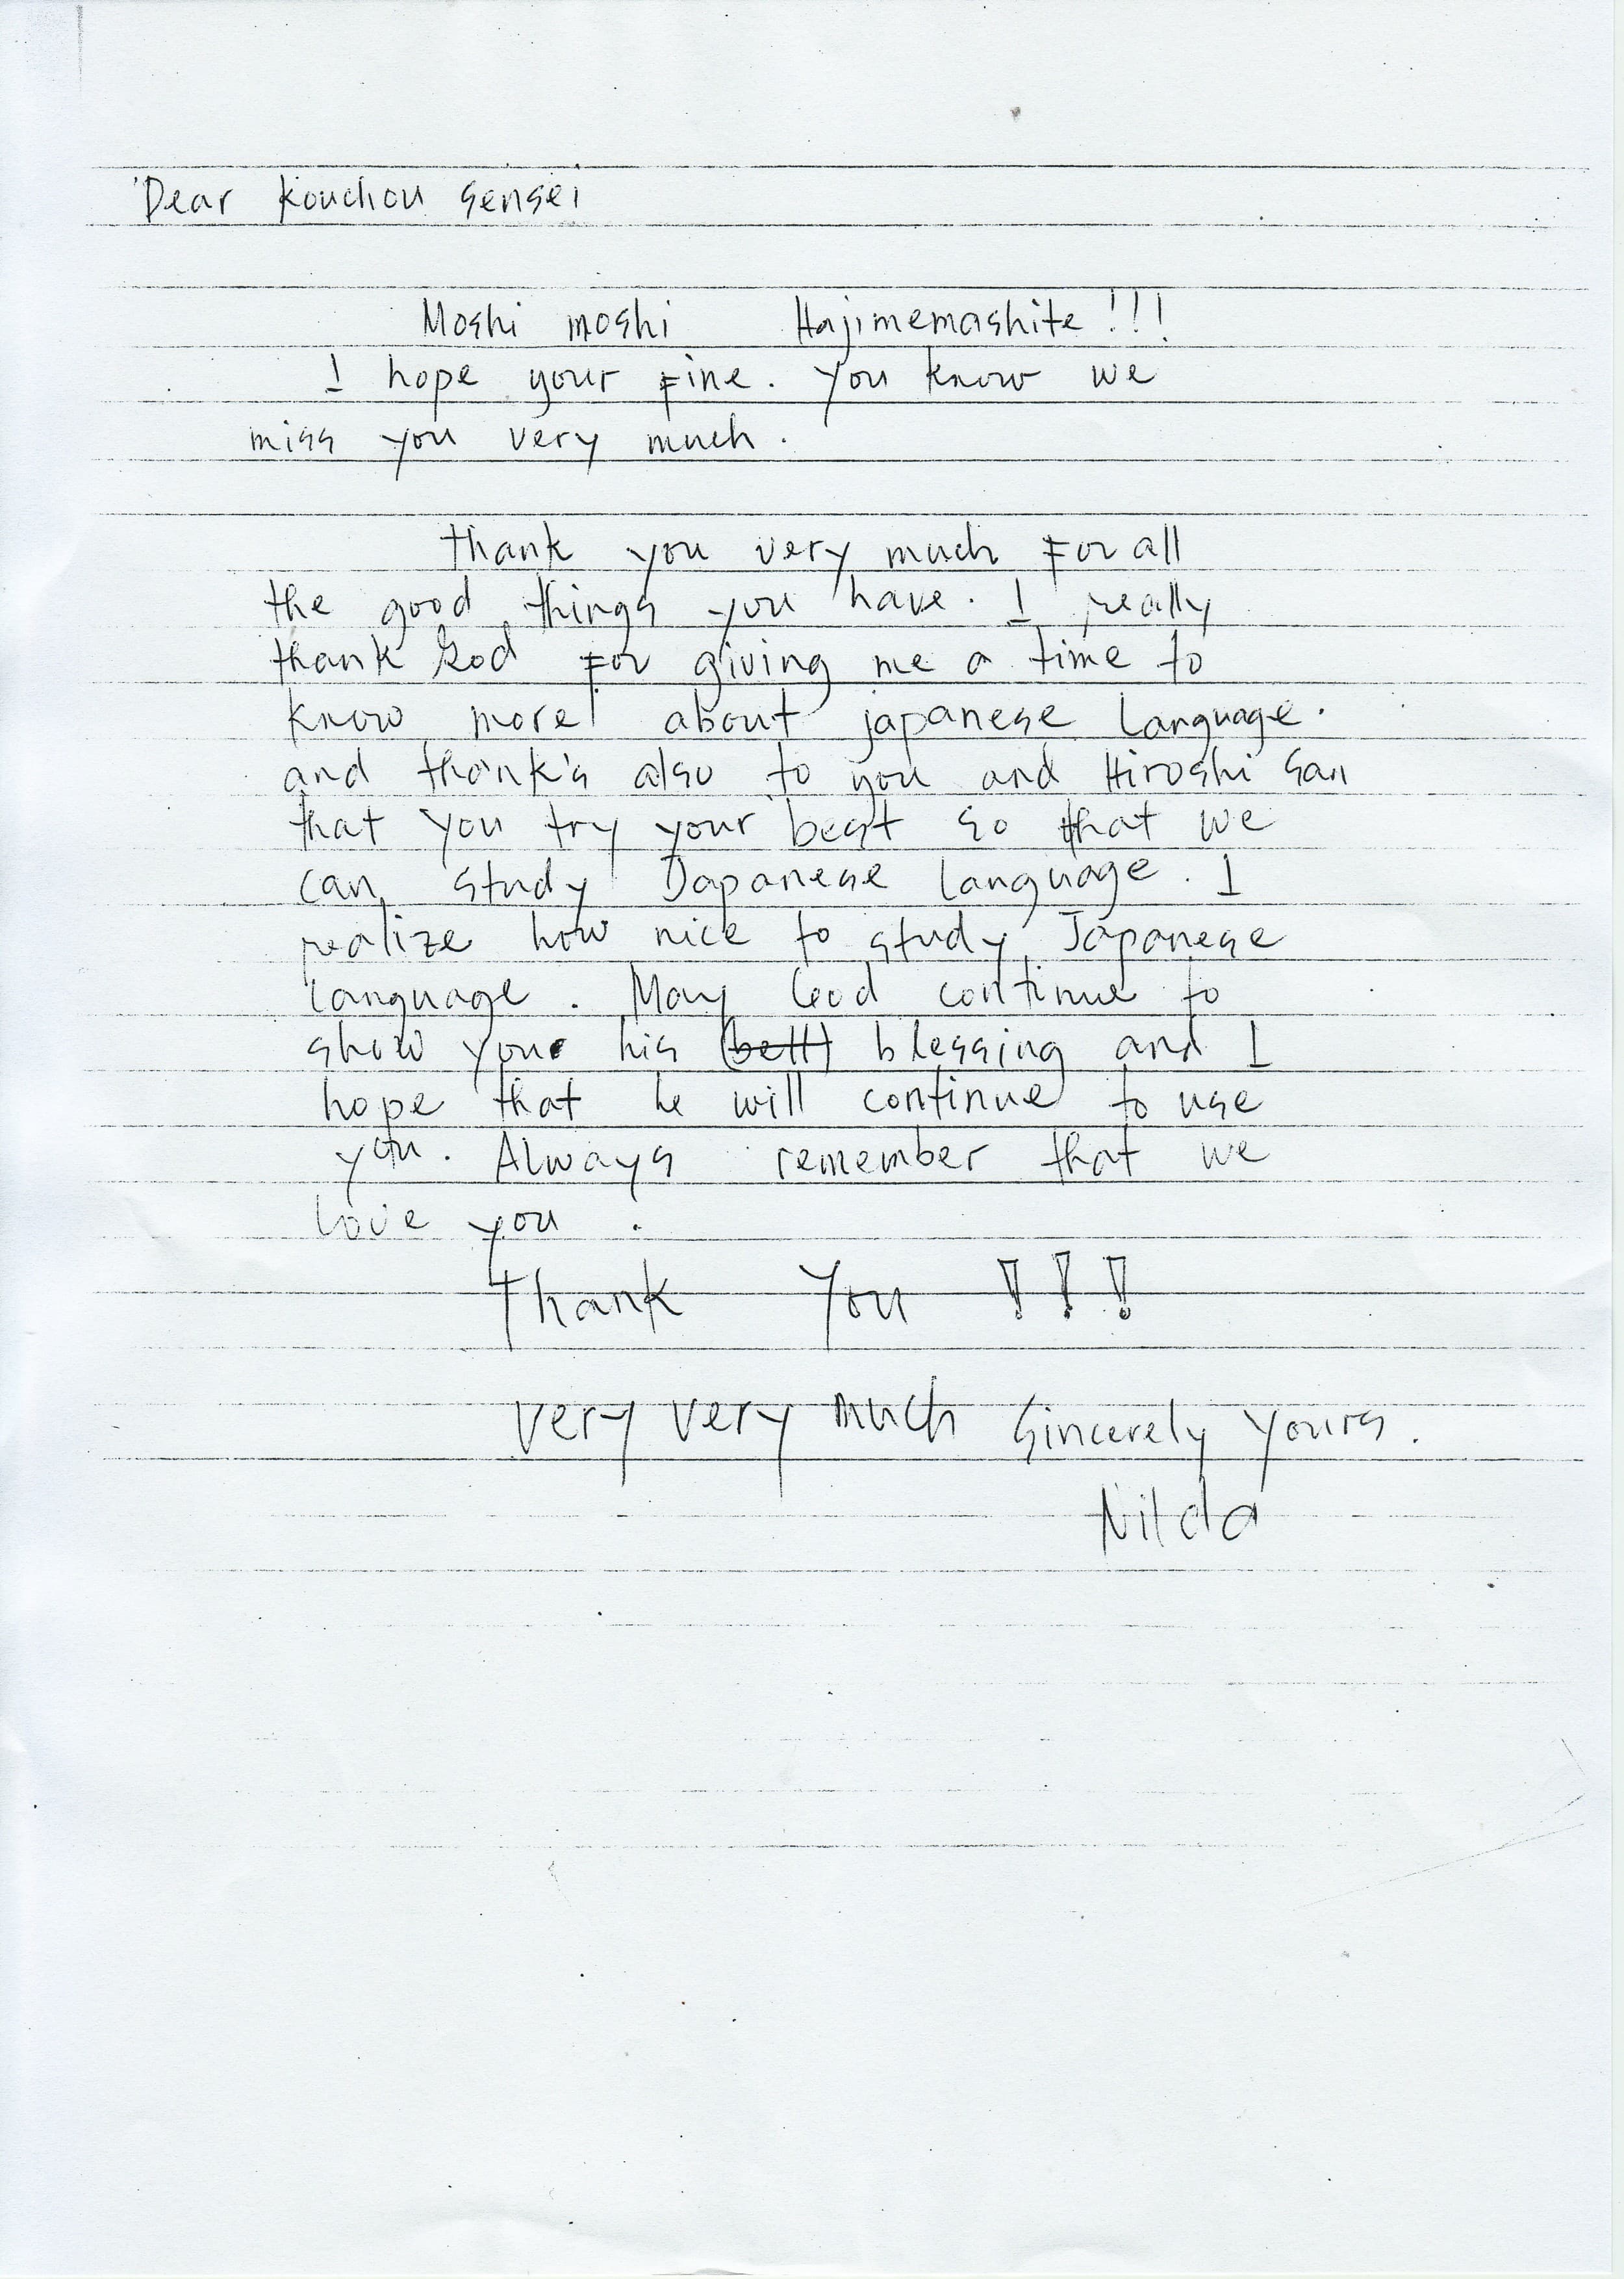 Dear Kouchou sensei
Moshi moshi Hajimemashite!!!
I hope your fine. You know we
miss you very much.
thank you very much For all
the good things you have. I really
thank God For giving me a time to
know more about japanese Language.
and thank's also to you and Hiroshi san
that you try your best so that we
can study Japanese Language. I
realize how nice to study Japanese
Language. May God continue to
show your his blessing and I
hope that he will continue to use
you. Always remember that we
Love you.
Thank You !!!
very very much Sincerely yours.
Nilda